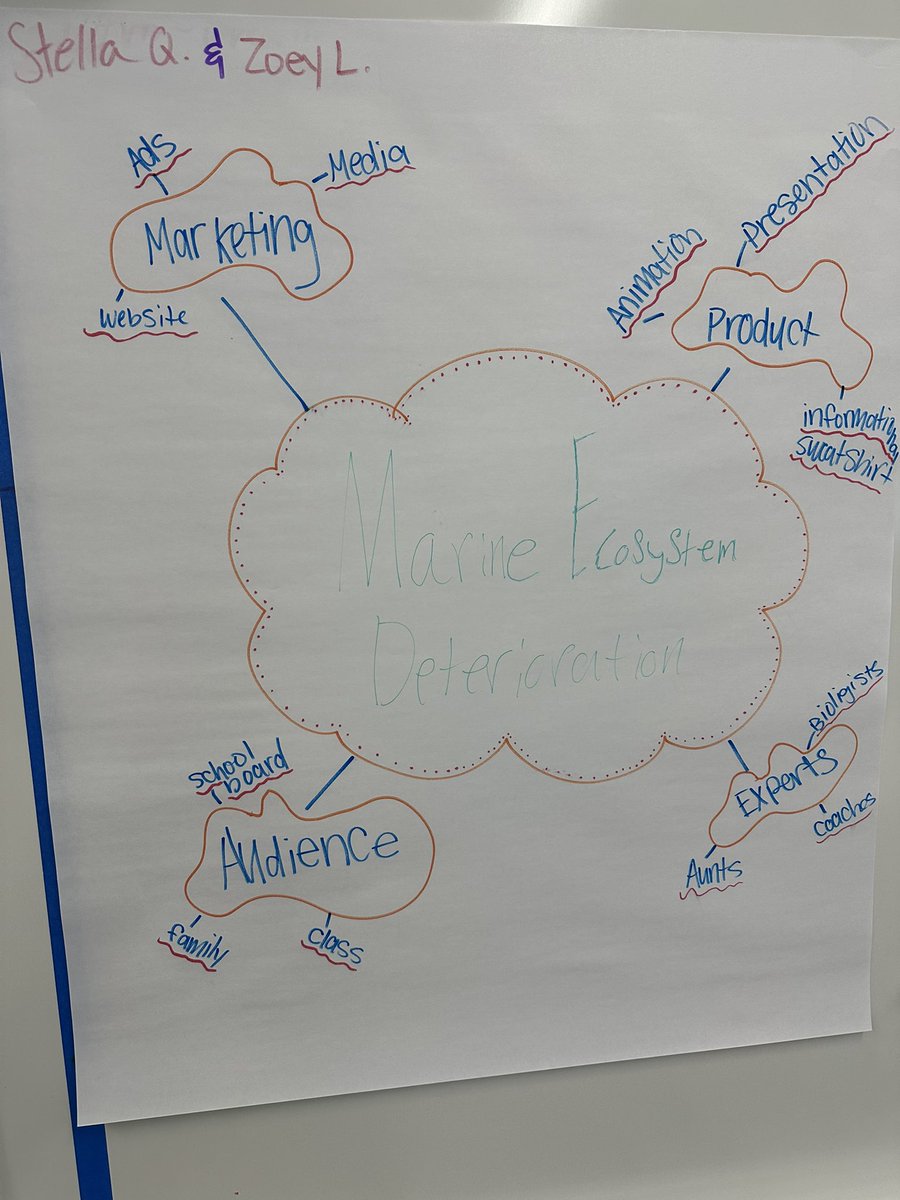 Stella Q. & Zoey L.
Ads
Media
Marketing
website
Presentation
Animation
Product
informational
sweatshirt
Marine Ecosystem
Deterioration
school
board
Audience
family
class
Biologists
Experts
coaches
Aunts